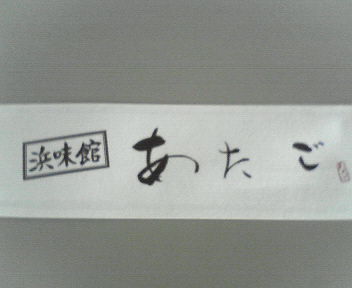 浜味館 あたご